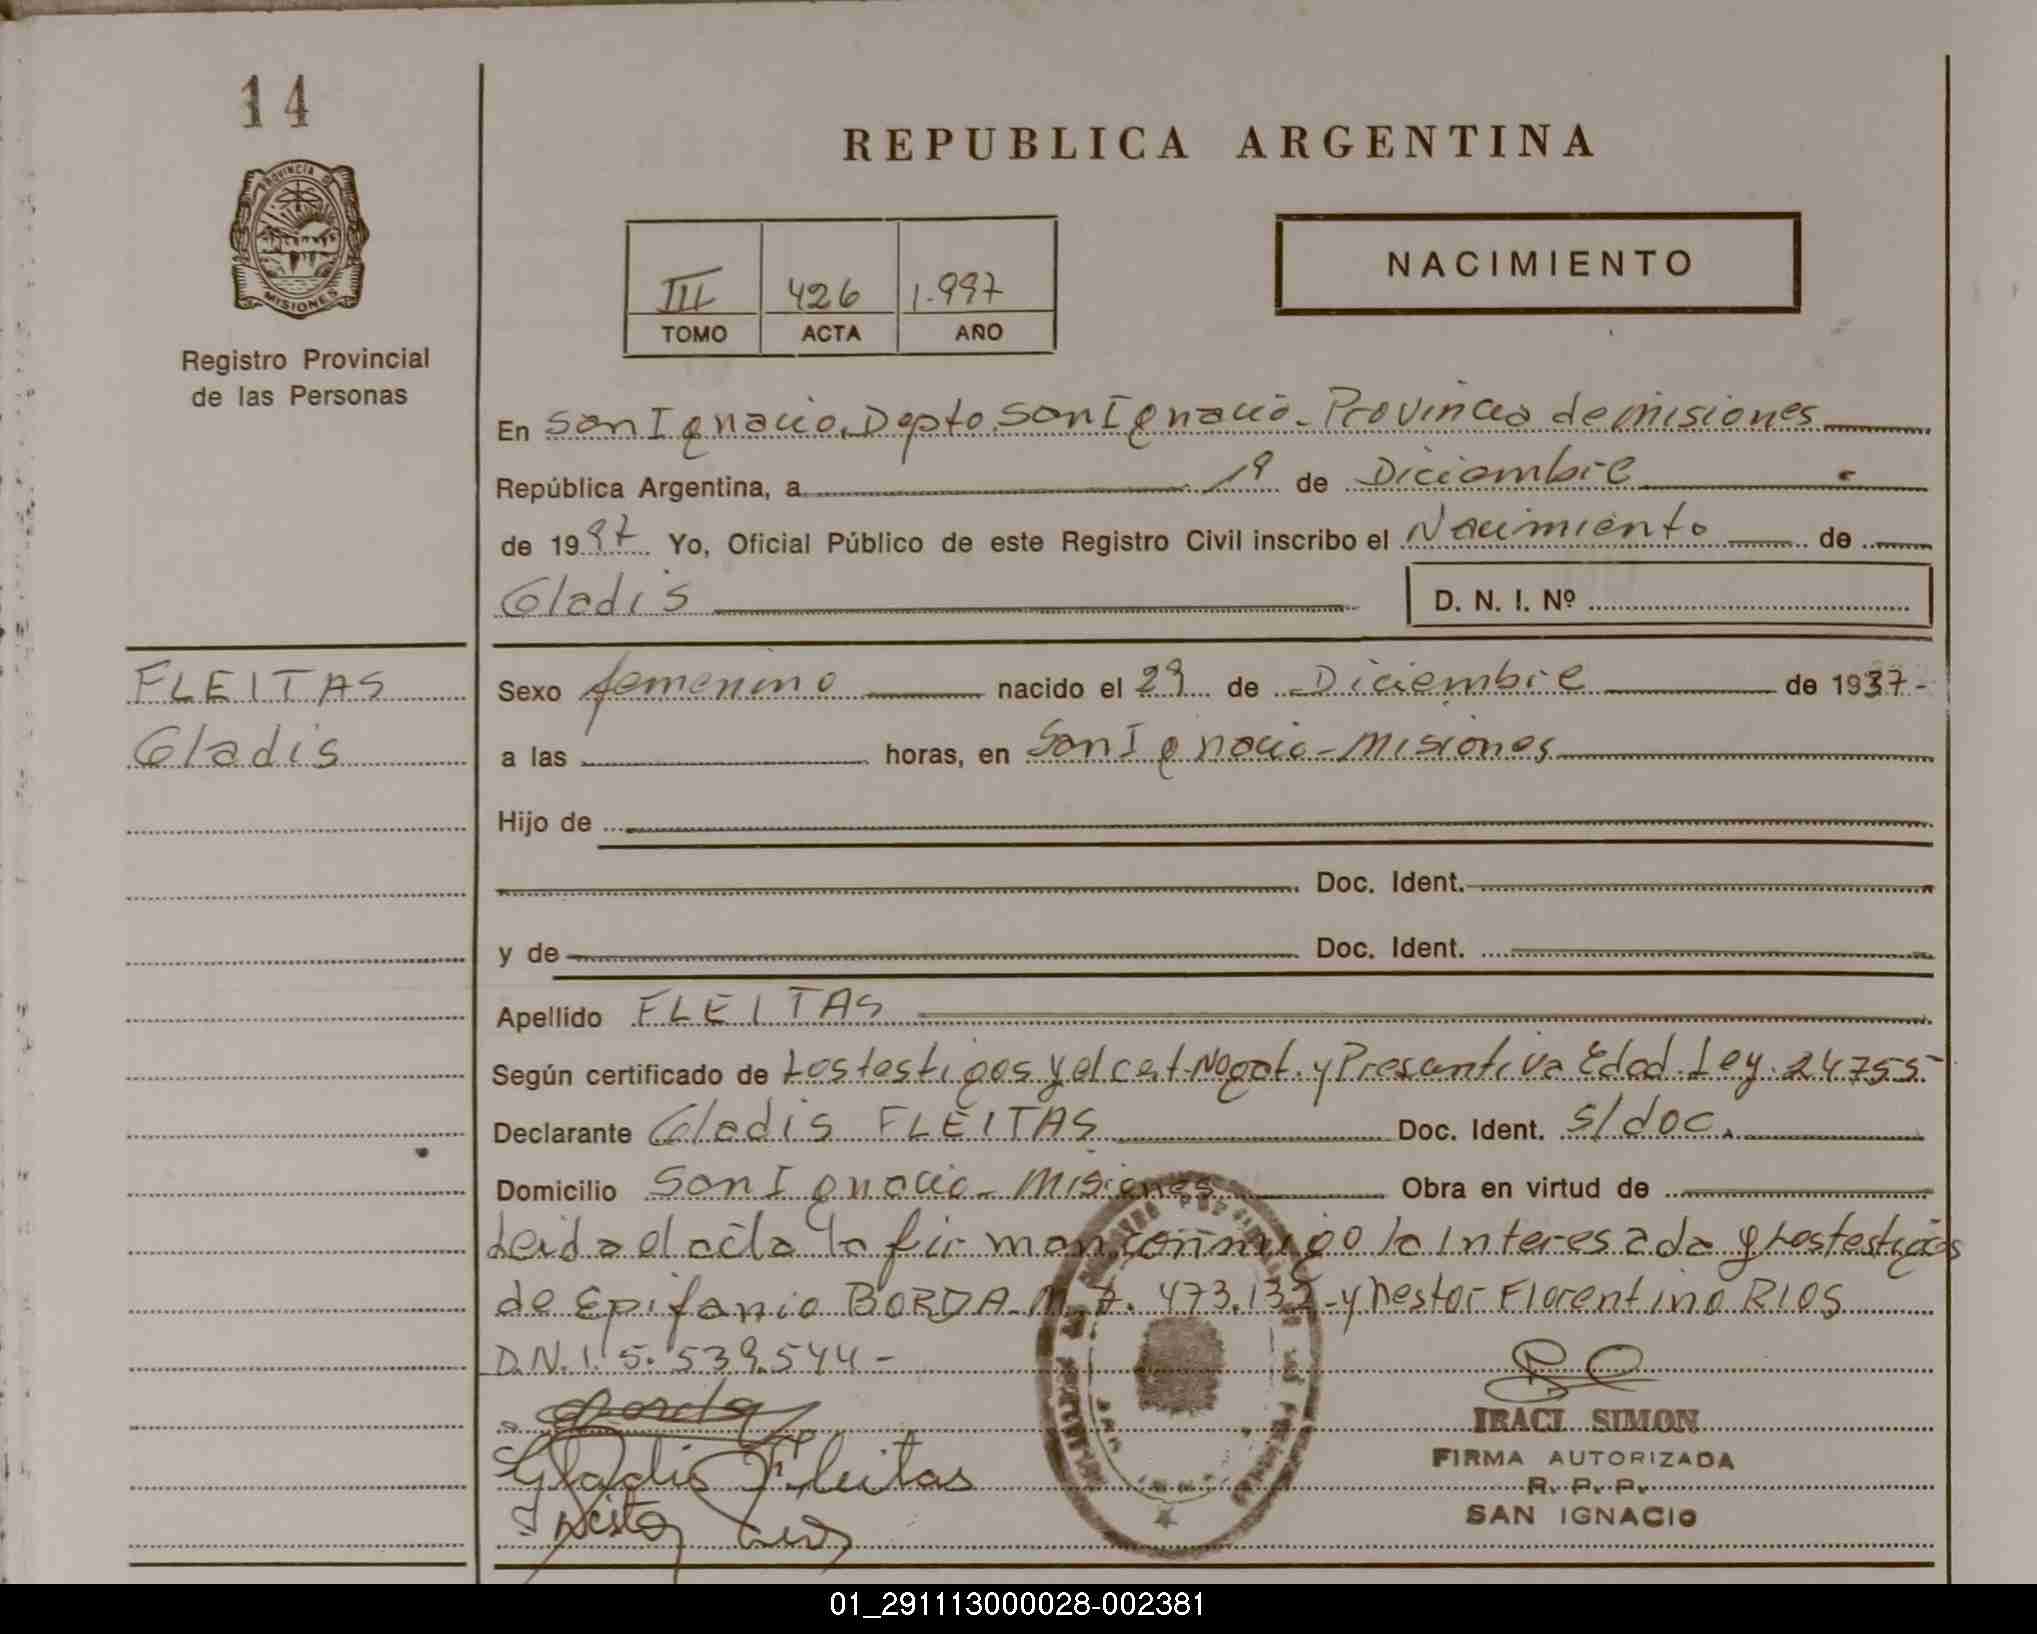 14
REPUBLICA ARGENTINA
PROVINCIA DE
MISIONES
Registro Provincial
de las Personas
III 426 1.997
TOMO ACTA AÑO
NACIMIENTO
En San Ignacio, Depto San Ignacio - Provincia de misiones
República Argentina, a 1º de Diciembre
de 1997 Yo, Oficial Público de este Registro Civil inscribo el Nacimiento de
Gladis D. N. I. Nº
FLEITAS
Gladis
Sexo femenino nacido el 29 de Diciembre de 1937-
a las horas, en San Ignacio - Misiones
Hijo de
Doc. Ident.
y de Doc. Ident.
Apellido FLEITAS
Según certificado de Los testigos y el cert. Negat. y Presuntiva Edad. Ley. 24755-
Declarante Gladis FLEITAS Doc. Ident. s/doc.
Domicilio San Ignacio - Misiones Obra en virtud de
Leida el acta la firman conmigo la interesada y Los testigos
de Epifanio BORDA - M. I. 473.132 - y Nestor Florentino RIOS
D.N.I. 5.539.544 -
Borda
Gladis Fleitas
Nestor
IRACI SIMON
FIRMA AUTORIZADA
R. P. P.
SAN IGNACIO
01_291113000028-002381